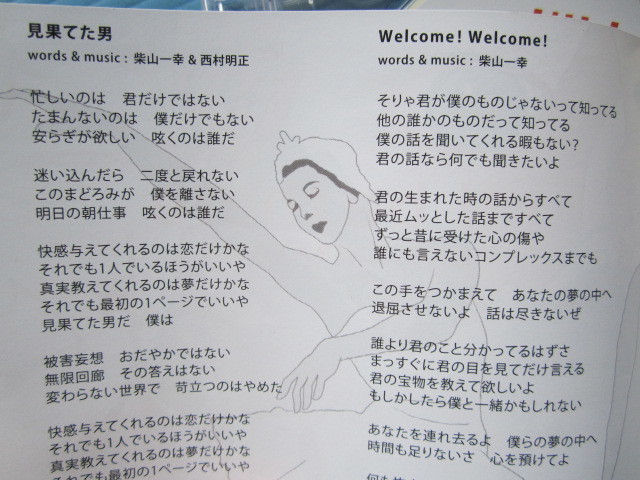 見果てた男
words & music : 柴山一幸 & 西村明正
忙しいのは 君だけではない
たまんないのは 僕だけでもない
安らぎが欲しい 呟くのは誰だ
迷い込んだら 二度と戻れない
このまどろみが 僕を離さない
明日の朝仕事 呟くのは誰だ
快感与えてくれるのは恋だけかな
それでも1人でいるほうがいいや
真実教えてくれるのは夢だけかな
それでも最初の1ページでいいや
見果てた男だ 僕は
被害妄想 おだやかではない
無限回廊 その答えはない
変わらない世界で 苛立つのはやめた
快感与えてくれるのは恋だけかな
それでも1人でいるほうがいいや
真実教えてくれるのは夢だけかな
それでも最初の1ページでいいや
Welcome! Welcome!
words & music : 柴山一幸
そりゃ君が僕のものじゃないって知ってる
他の誰かのものだって知ってる
僕の話を聞いてくれる暇もない?
君の話なら何でも聞きたいよ
君の生まれた時の話からすべて
最近ムッとした話まですべて
ずっと昔に受けた心の傷や
誰にも言えないコンプレックスまでも
この手をつかまえて あなたの夢の中へ
退屈させないよ 話は尽きないぜ
誰より君のこと分かってるはずさ
まっすぐに君の目を見てだけ言える
君の宝物を教えて欲しいよ
もしかしたら僕と一緒かもしれない
あなたを連れ去るよ 僕らの夢の中へ
時間も足りないさ 心を預けてよ